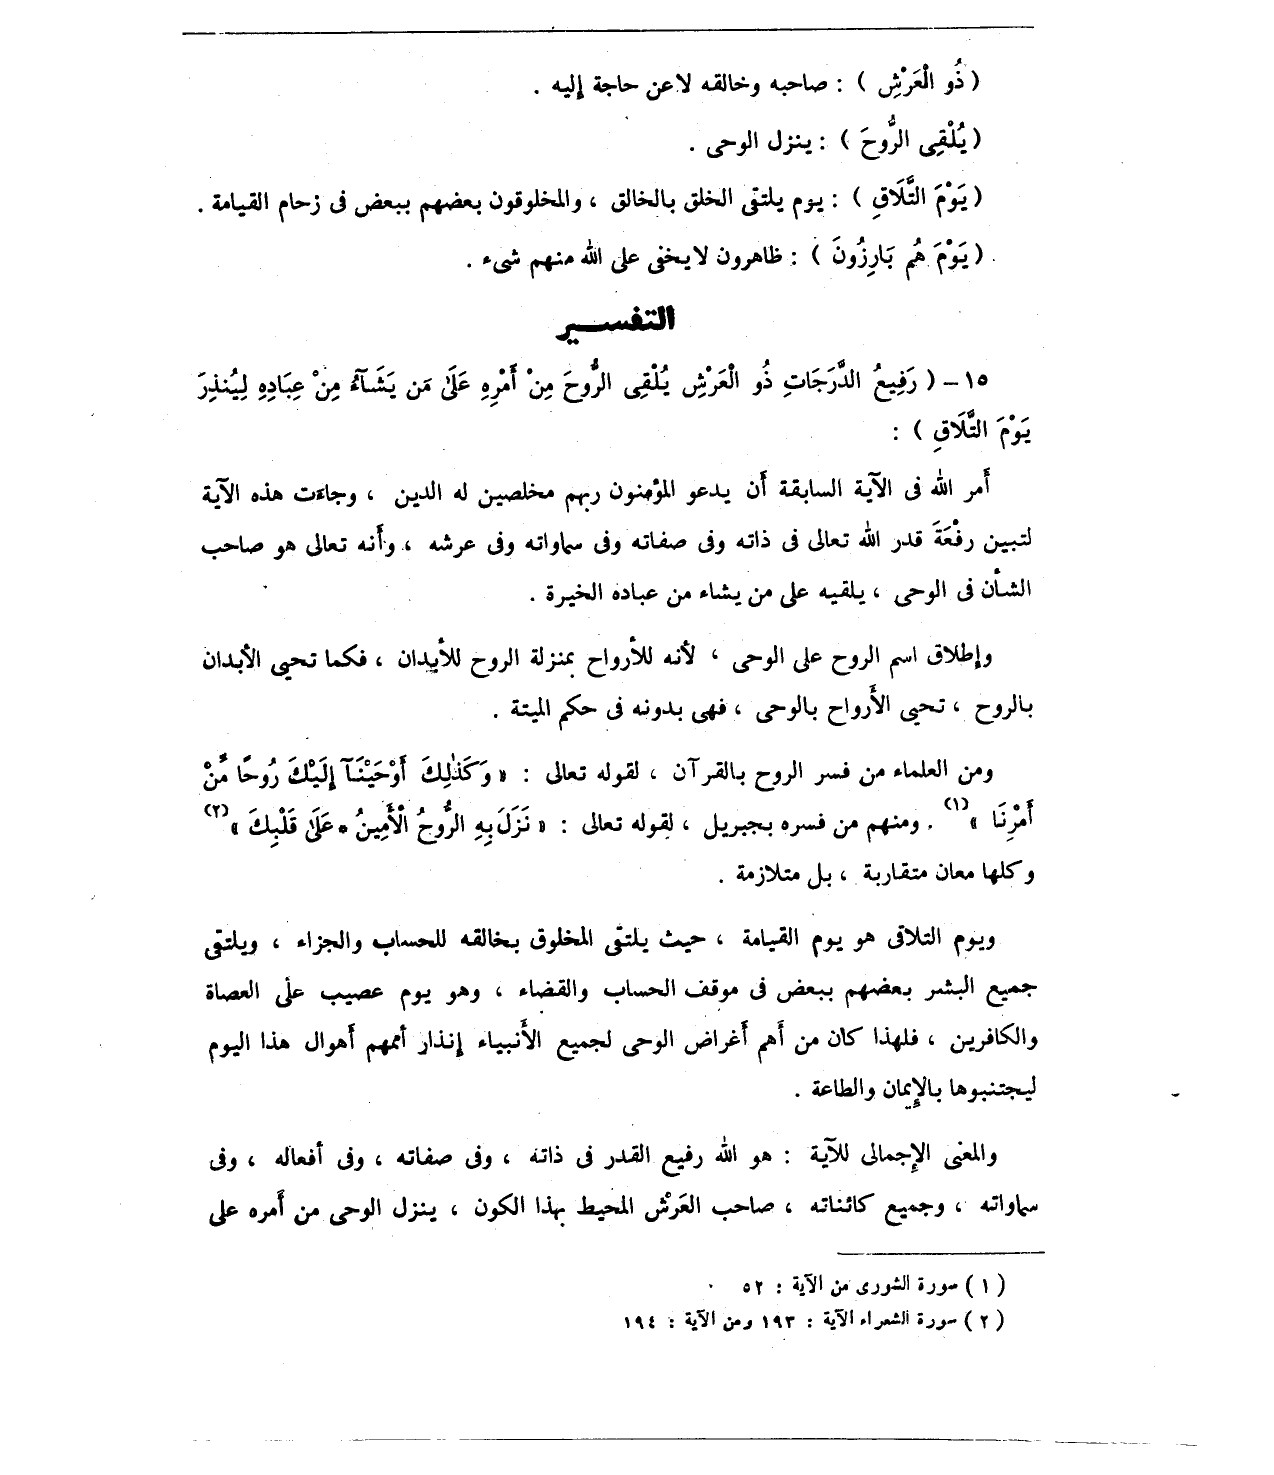 ( ذُو الْعَرْشِ ) : صاحبه وخالقه لا عن حاجة إليه .
( يُلْقِى الرُّوحَ ) : ينزل الوحى .
( يَوْمَ التَّلَاقِ ) : يوم يلتقى الخلق بالخالق ، والمخلوقون بعضهم ببعض فى زحام القيامة .
( يَوْمَ هُم بَارِزُونَ ) : ظاهرون لا يخفى على الله منهم شىء .
التفسير
١٥ – ( رَفِيعُ الدَّرَجَاتِ ذُو الْعَرْشِ يُلْقِى الرُّوحَ مِنْ أَمْرِهِ عَلَىٰ مَن يَشَآءُ مِنْ عِبَادِهِ لِيُنذِرَ
يَوْمَ التَّلَاقِ ) :
أَمر الله فى الآية السابقة أَن يدعو المؤمنون ربهم مخلصين له الدين ، وجاءت هذه الآية
لتبين رِفْعَةَ قدر الله تعالى فى ذاته وفى صفاته وفى سماواته وفى عرشه ، وأَنه تعالى هو صاحب
الشأن فى الوحى ، يلقيه على من يشاء من عباده الخيرة .
وإطلاق اسم الروح على الوحى ، لأنه للأرواح بمنزلة الروح للأبدان ، فكما تحيى الأبدان
بالروح ، تحيى الأَرواح بالوحى ، فهى بدونه فى حكم الميتة .
ومن العلماء من فسر الروح بالقرآن ، لقوله تعالى : « وَكَذَٰلِكَ أَوْحَيْنَآ إِلَيْكَ رُوحًا مِّنْ
أَمْرِنَا » (١) . ومنهم من فسره بجبريل ، لقوله تعالى : « نَزَلَ بِهِ الرُّوحُ الْأَمِينُ * عَلَىٰ قَلْبِكَ » (٢)
وكلها معان متقاربة ، بل متلازمة .
ويوم التلاقى هو يوم القيامة ، حيث يلتقى المخلوق بخالقه للحساب والجزاء ، ويلتقى
جميع البشر بعضهم ببعض فى موقف الحساب والقضاء ، وهو يوم عصيب على العصاة
والكافرين ، فلهذا كان من أَهم أَغراض الوحى لجميع الأَنبياء إنذار أممهم أَهوال هذا اليوم
ليجتنبوها بالإِيمان والطاعة .
والمعنى الإجمالى للآية : هو الله رفيع القدر فى ذاته ، وفى صفاته ، وفى أفعاله ، وفى
سماواته ، وجميع كائناته ، صاحب العَرْش المحيط بهذا الكون ، ينزل الوحى من أَمره على
( ١ ) سورة الشورى من الآية : ٥٢
( ٢ ) سورة الشعراء الآية : ١٩٣ ومن الآية : ١٩٤